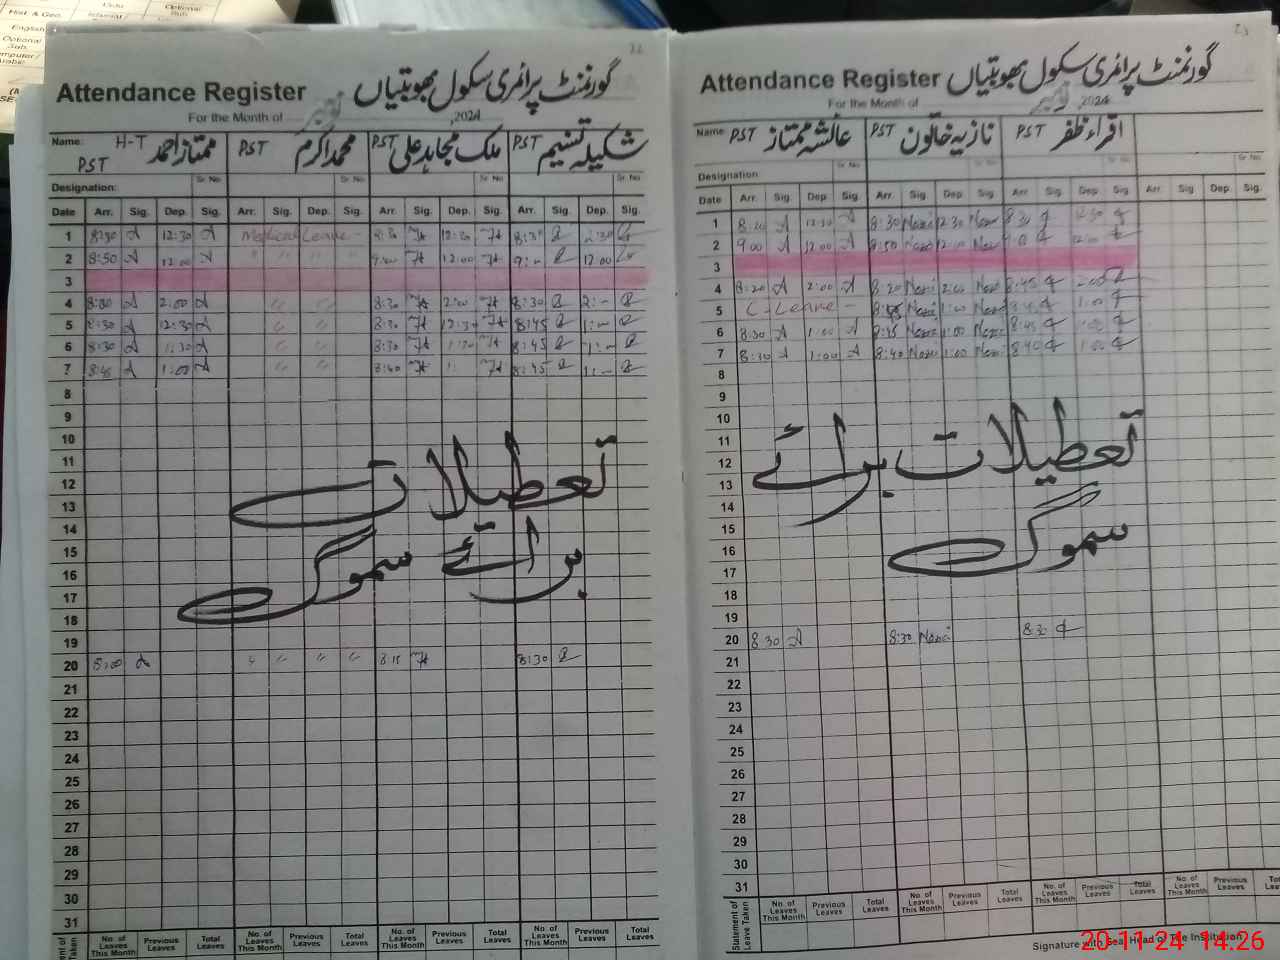 Hist. & Geo.
Urdu
Optional
Sub.
English
Optional
Sub.
22
Attendance Register گورنمنٹ پرائمری سکول بھوبتیاں
For the Month of نومبر ,2024
Name: PST H-T ممتاز احمد PST محمد اکرم PST ملک مجاہد علی PST شکیلہ تسنیم
Sr. No Sr. No Sr. No Sr. No
Designation:
Date Arr. Sig. Dep. Sig. Arr. Sig. Dep. Sig. Arr. Sig. Dep. Sig. Arr. Sig. Dep. Sig.
1 8:30 12:30 Medical Leave - 8:30 12:30 8:30 12:30
2 8:50 12:00 " " " 9:00 12:00 9:- 12:00
3
4 8:00 2:00 " " 8:30 2:00 8:30 2:-
5 8:30 12:30 " " 8:30 12:30 8:45 1:-
6 8:30 1:30 " " 8:30 1:30 8:45 1:-
7 8:45 1:00 " " 8:40 1: 8:45 1:-
8
9
10
11
12
13
14
15
16
17
18
19
تعطیلات
برائے سموگ
20 8:00 " " " " 8:15 8:30
21
22
23
24
25
26
27
28
29
30
31
No. of Leaves This Month Previous Leaves Total Leaves No. of Leaves This Month Previous Leaves Total Leaves No. of Leaves This Month Previous Leaves Total Leaves No. of Leaves This Month Previous Leaves Total Leaves
23
Attendance Register گورنمنٹ پرائمری سکول بھوبتیاں
For the Month of نومبر ,2024
Name: PST عائشہ ممتاز PST نازیہ خاتون PST اقراء ظفر
Sr. No Sr. No Sr. No
Designation:
Date Arr. Sig. Dep. Sig. Arr. Sig. Dep. Sig. Arr. Sig. Dep. Sig. Arr. Sig. Dep. Sig.
1 8:20 12:30 8:30 Nazi 12:30 Nazi 8:30 12:30
2 9:00 12:00 8:50 Nazi 12:00 Nazi 9:00 12:00
3
4 8:20 2:00 8:20 Nazi 2:00 Nazi 8:45 2:00
5 C-Leave - 8:45 Nazi 1:00 Nazi 8:45 1:00
6 8:30 1:00 8:45 Nazi 1:00 Nazi 8:45 1:00
7 8:30 1:00 8:40 Nazi 1:00 Nazi 8:40 1:00
8
9
10
11
12
13
14
15
16
17
18
19
تعطیلات برائے
سموگ
20 8:30 8:30 Nazi 8:30
21
22
23
24
25
26
27
28
29
30
31
Statement of Leave Taken No. of Leaves This Month Previous Leaves Total Leaves No. of Leaves This Month Previous Leaves Total Leaves No. of Leaves This Month Previous Leaves Total Leaves No. of Leaves This Month Previous Leaves
Signature with Seal Head of The Institution
20-11-24 14:26